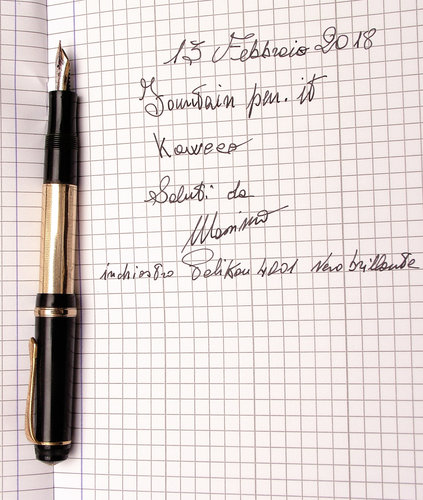 13 Febbraio 2018
Fountain pen.it
Kaweco
Saluti da
Massimo
inchiostro Pelikan 4001 Nero brillante